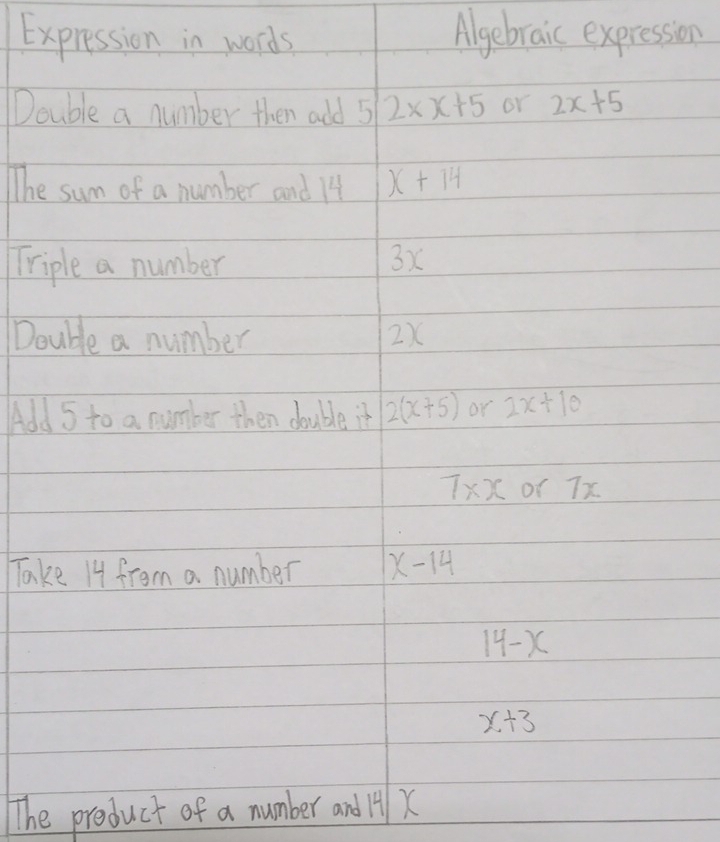 Expression in words Algebraic expression
Double a number then add 5 2×x+5 or 2x+5
The sum of a number and 14 x + 14
Triple a number 3x
Double a number 2x
Add 5 to a number then double it 2(x+5) or 2x+10
7×x or 7x
Take 14 from a number x-14
14-x
x+3
The product of a number and 14 x